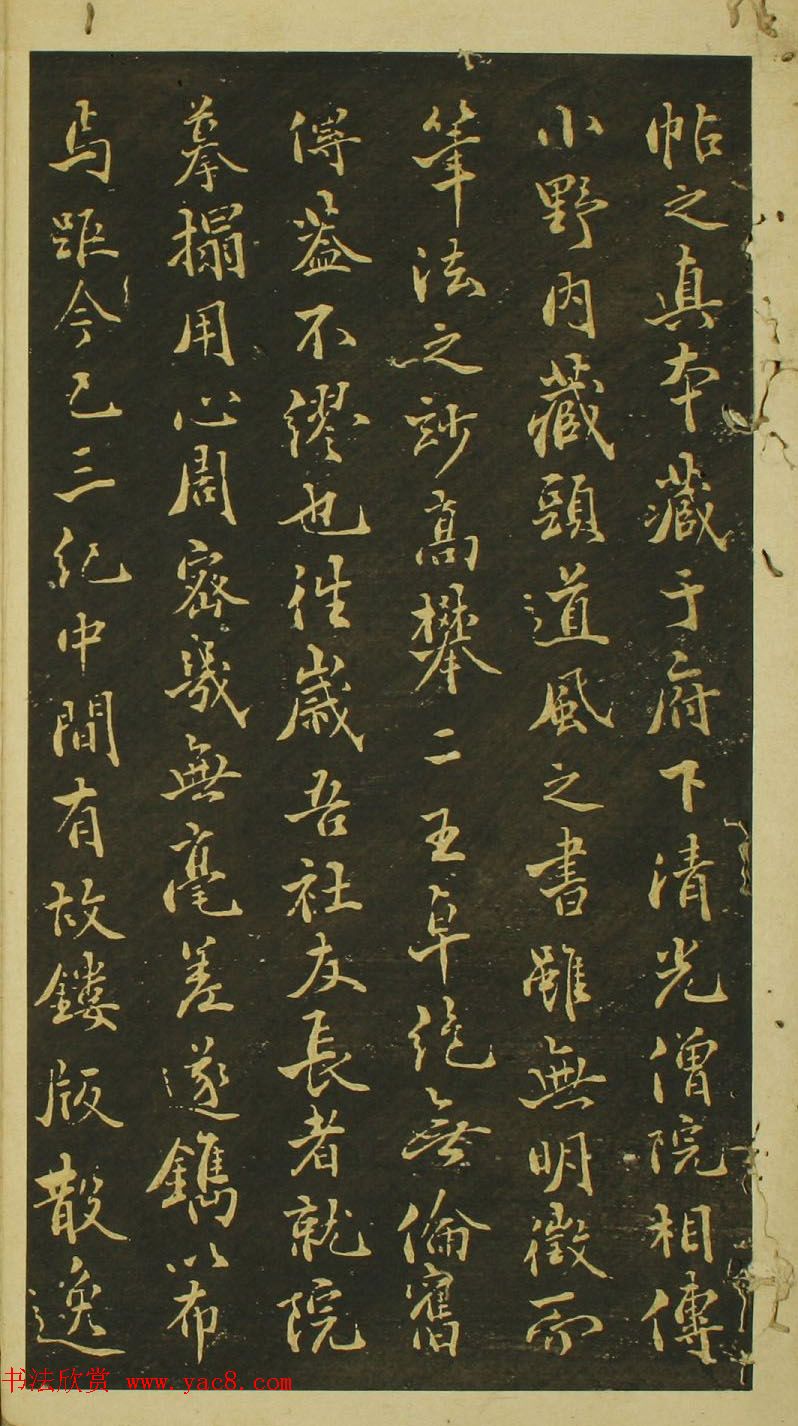 帖之真本藏于府下清光僧院相傳
小野内藏頭道風之書雖無明徵而
筆法之玅高攀二王卓絶無倫舊
傳蓋不繆也往歲吾社友長者就院
摹搨用心周密幾無毫差遂鐫以布
焉距今已三紀中間有故鏤版散逸
书法欣赏 www.yac8.com